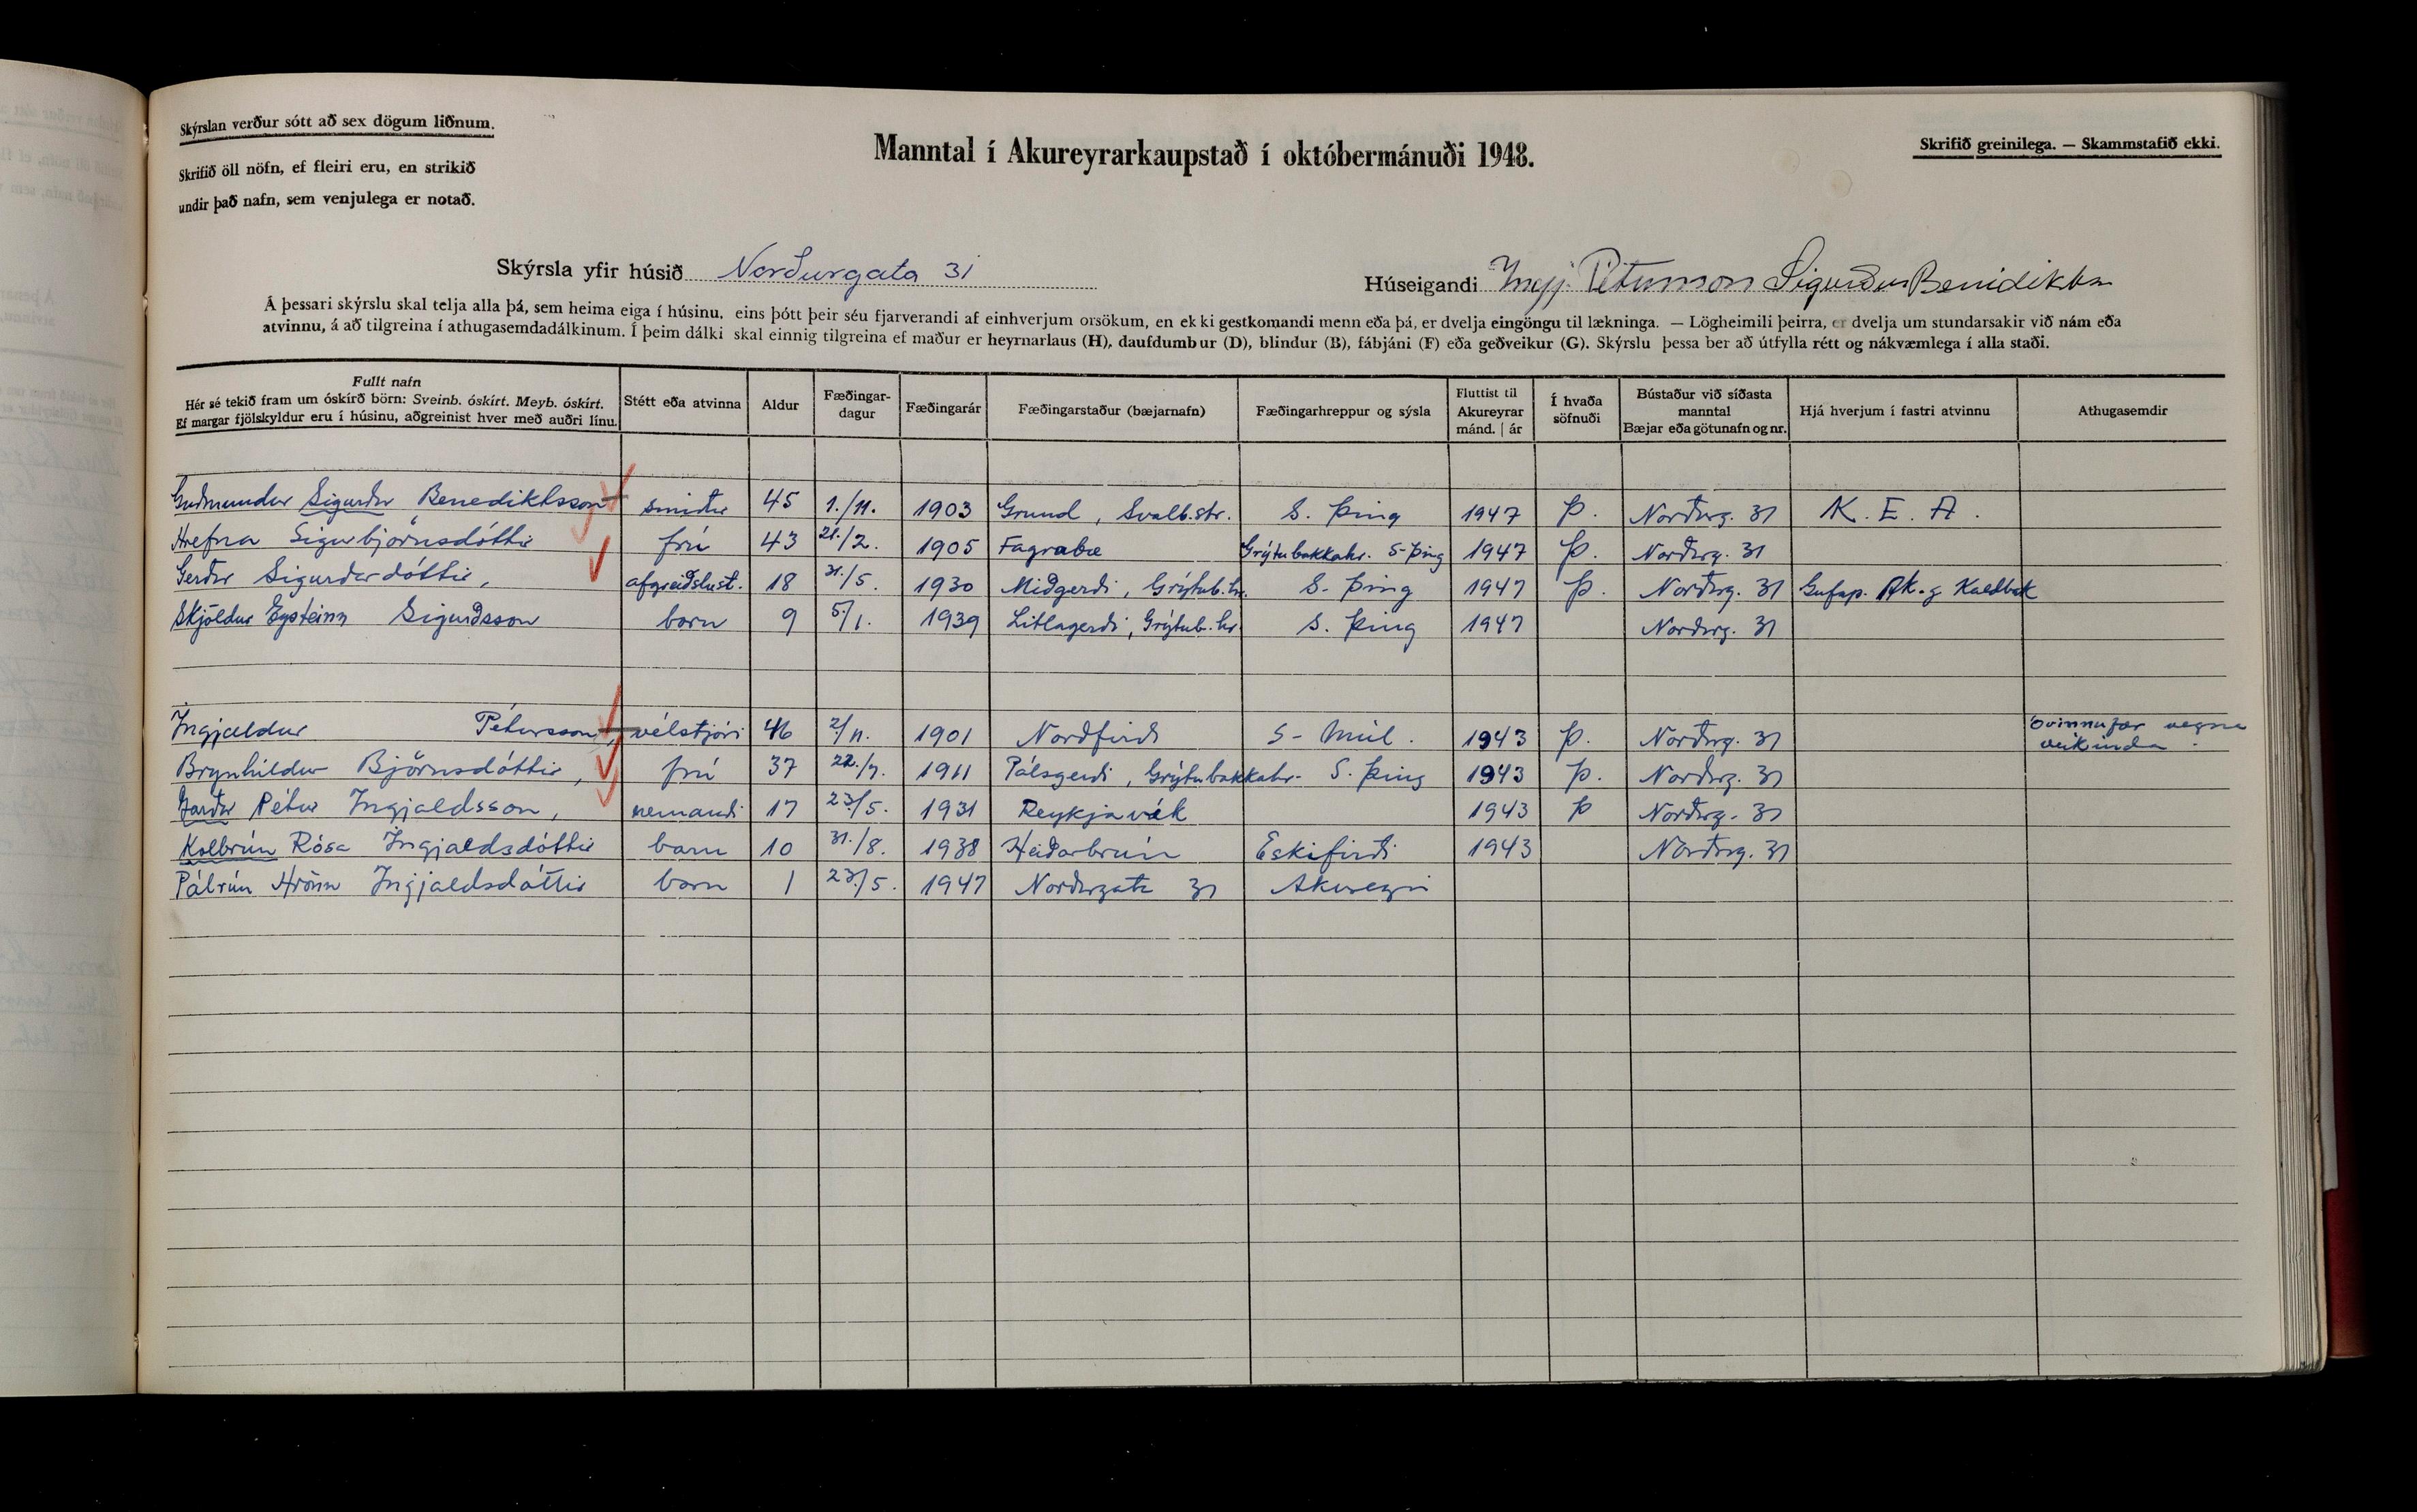 Skýrslan verður sótt að sex dögum liðnum.
Skrifið öll nöfn, ef fleiri eru, en strikið
undir það nafn, sem venjulega er notað.
Manntal í Akureyrarkaupstað í októbermánuði 1948.
Skrifið greinilega. — Skammstafið ekki.
Skýrsla yfir húsið Norðurgata 31
Húseigandi Ingj. Pétursson Sigurður Benidikts
Á þessari skýrslu skal telja alla þá, sem heima eiga í húsinu, eins þótt þeir séu fjarverandi af einhverjum orsökum, en ekki gestkomandi menn eða þá, er dvelja eingöngu til lækninga. — Lögheimili þeirra, er dvelja um stundarsakir við nám eða
atvinnu, á að tilgreina í athugasemdadálkinum. Í þeim dálki skal einnig tilgreina ef maður er heyrnarlaus (H), daufdumbur (D), blindur (B), fábjáni (F) eða geðveikur (G). Skýrslu þessa ber að útfylla rétt og nákvæmlega í alla staði.
Fullt nafn
Hér sé tekið fram um óskírð börn: Sveinb. óskírt. Meyb. óskírt.
Ef margar fjölskyldur eru í húsinu, aðgreinist hver með auðri línu.
Stétt eða atvinna
Aldur
Fæðingar-
dagur
Fæðingarár
Fæðingarstaður (bæjarnafn)
Fæðingarhreppur og sýsla
Fluttist til
Akureyrar
mánd. | ár
Í hvaða
söfnuði
Bústaður við síðasta
manntal
Bæjar eða götunafn og nr.
Hjá hverjum í fastri atvinnu
Athugasemdir
Guðmundur Sigurður Benediktsson smiður 45 1./11. 1903 Grund, Svalb.str. S. Þing 1947 Þ. Norðurg. 31 K. E. A.
Hrefna Sigurbjörnsdóttir frú 43 21./2. 1905 Fagrabæ Grýtubakkahr. S-Þing 1947 Þ. Norðurg. 31
Gerður Sigurðardóttir, afgreiðslust. 18 31./5. 1930 Miðgerði, Grýtub.hr. S. Þing 1947 Þ. Norðurg. 31 Gufup. Ak. g Kaldbak
Skjöldur Eysteinn Sigurðsson barn 9 5./1. 1939 Litlagerði, Grýtub.hr. S. Þing 1947 Norðurg. 31
Ingjaldur Pétursson, vélstjóri 46 2/11. 1901 Norðfirði S- Múl. 1943 Þ. Norðurg. 31 óvinnufær vegna
veikinda.
Brynhildur Björnsdóttir, frú 37 22./7. 1911 Pálsgerði, Grýtubakkahr. S. Þing 1943 Þ. Norðurg. 31
Garðar Pétur Ingjaldsson, nemandi 17 23/5. 1931 Reykjavík 1943 Þ Norðurg. 31
Kolbrún Rósa Ingjaldsdóttir barn 10 31./8. 1938 Heiðarbrún Eskifirði 1943 Norðurg. 31
Pálrún Hrönn Ingjaldsdóttir barn 1 23/5. 1947 Norðurgata 31 Akureyri